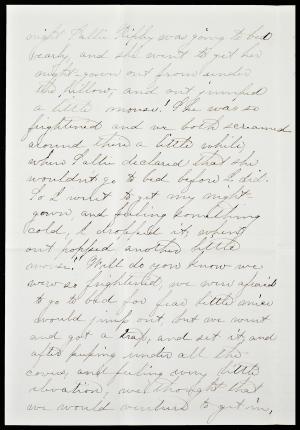 night Callie Ripley was going to bed
early, and she went to get her
night-gown out from under
the pillow, and out jumped
a little mouse! She was so
frightened and we both screamed
around there a little while,
when Callie declared that she
wouldn't go to bed before I did.
So I went to get my night-
gown, and feeling something
cold, I dropped it, when
out popped another little
mouse! Well do you know we
were so frightened, we were afraid
to go to bed for fear little mice
would jump out, but we went
and got a trap, and set it, and
after peeping under all the
covers, and feeling every little
elevation, we thought that
we would venture to get in,